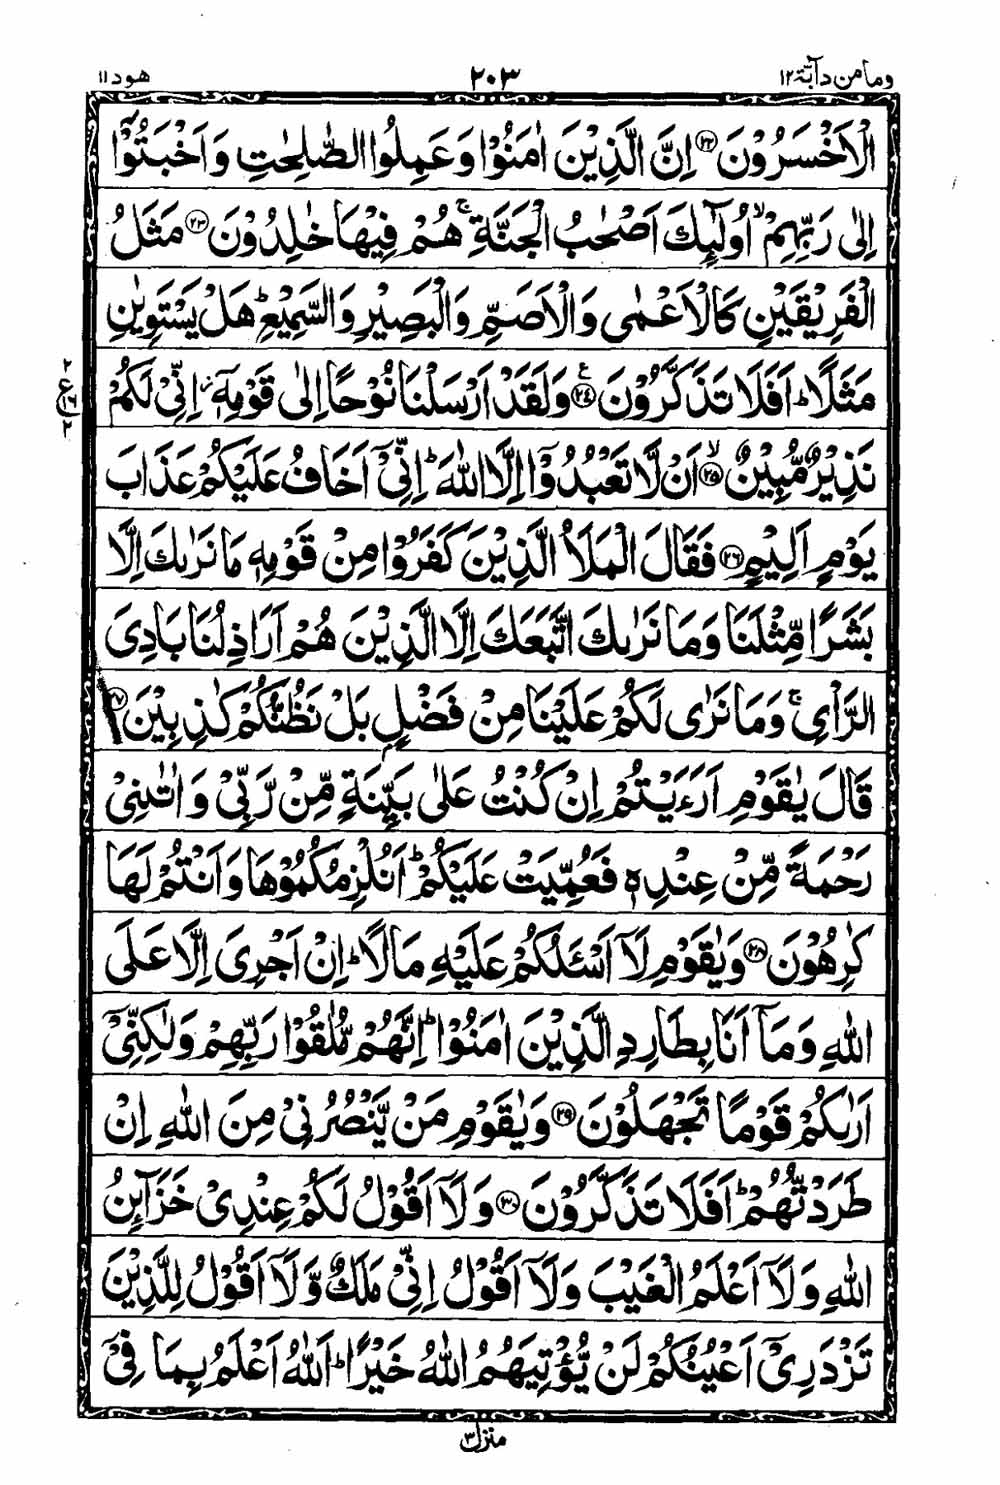 وما من دآبة ١٢ ٢٠٣ هود ١١
الْاَخْسَرُوْنَ ۝٢٢ اِنَّ الَّذِيْنَ اٰمَنُوْا وَعَمِلُوا الصّٰلِحٰتِ وَاَخْبَتُوْٓا
اِلٰى رَبِّهِمْ ۙ اُولٰٓئِكَ اَصْحٰبُ الْجَنَّةِ ۚ هُمْ فِيْهَا خٰلِدُوْنَ ۝٢٣ مَثَلُ
الْفَرِيْقَيْنِ كَالْاَعْمٰى وَالْاَصَمِّ وَالْبَصِيْرِ وَالسَّمِيْعِ ؕ هَلْ يَسْتَوِيٰنِ
مَثَلًا ؕ اَفَلَا تَذَكَّرُوْنَ ۝٢٤ ع وَلَقَدْ اَرْسَلْنَا نُوْحًا اِلٰى قَوْمِهٖٓ ز اِنِّىْ لَكُمْ
٢ ع ١٦ ٢
نَذِيْرٌ مُّبِيْنٌ ۙ ۝٢٥ اَنْ لَّا تَعْبُدُوْٓا اِلَّا اللّٰهَ ؕ اِنِّىْٓ اَخَافُ عَلَيْكُمْ عَذَابَ
يَوْمٍ اَلِيْمٍ ۝٢٦ فَقَالَ الْمَلَاُ الَّذِيْنَ كَفَرُوْا مِنْ قَوْمِهٖ مَا نَرٰىكَ اِلَّا
بَشَرًا مِّثْلَنَا وَمَا نَرٰىكَ اتَّبَعَكَ اِلَّا الَّذِيْنَ هُمْ اَرَاذِلُنَا بَادِىَ
الرَّاْىِ ۚ وَمَا نَرٰى لَكُمْ عَلَيْنَا مِنْ فَضْلٍۭ بَلْ نَظُنُّكُمْ كٰذِبِيْنَ ۝٢٧
قَالَ يٰقَوْمِ اَرَءَيْتُمْ اِنْ كُنْتُ عَلٰى بَيِّنَةٍ مِّنْ رَّبِّىْ وَاٰتٰىنِىْ
رَحْمَةً مِّنْ عِنْدِهٖ فَعُمِّيَتْ عَلَيْكُمْ ؕ اَنُلْزِمُكُمُوْهَا وَاَنْتُمْ لَهَا
كٰرِهُوْنَ ۝٢٨ وَيٰقَوْمِ لَآ اَسْـَٔلُكُمْ عَلَيْهِ مَالًا ؕ اِنْ اَجْرِىَ اِلَّا عَلَى
اللّٰهِ وَمَآ اَنَا بِطَارِدِ الَّذِيْنَ اٰمَنُوْا ؕ اِنَّهُمْ مُّلٰقُوْا رَبِّهِمْ وَلٰكِنِّىْٓ
اَرٰىكُمْ قَوْمًا تَجْهَلُوْنَ ۝٢٩ وَيٰقَوْمِ مَنْ يَّنْصُرُنِىْ مِنَ اللّٰهِ اِنْ
طَرَدْتُّهُمْ ؕ اَفَلَا تَذَكَّرُوْنَ ۝٣٠ وَلَآ اَقُوْلُ لَكُمْ عِنْدِىْ خَزَآئِنُ
اللّٰهِ وَلَآ اَعْلَمُ الْغَيْبَ وَلَآ اَقُوْلُ اِنِّىْ مَلَكٌ وَّلَآ اَقُوْلُ لِلَّذِيْنَ
تَزْدَرِىْٓ اَعْيُنُكُمْ لَنْ يُّؤْتِيَهُمُ اللّٰهُ خَيْرًا ؕ اَللّٰهُ اَعْلَمُ بِمَا فِىْٓ
منزل ٣